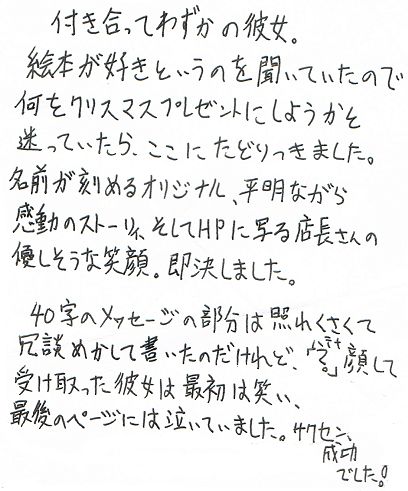 付き合ってわずかの彼女。
絵本が好きというのを聞いていたので
何をクリスマスプレゼントにしようかそ
迷っていたら、ここにたどりつきました。
名前が刻めるオリジナル、平明ながら
感動のストーリィ、そしてHPに写る店長さんの
優しそうな笑顔。即決しました。
40字のメッセージの部分は照れくさくて
冗談めかして書いたのだけれど、「？」顔して
受け取った彼女は最初は笑い、
最後のページには泣いていました。サクセン、
成功
でした!